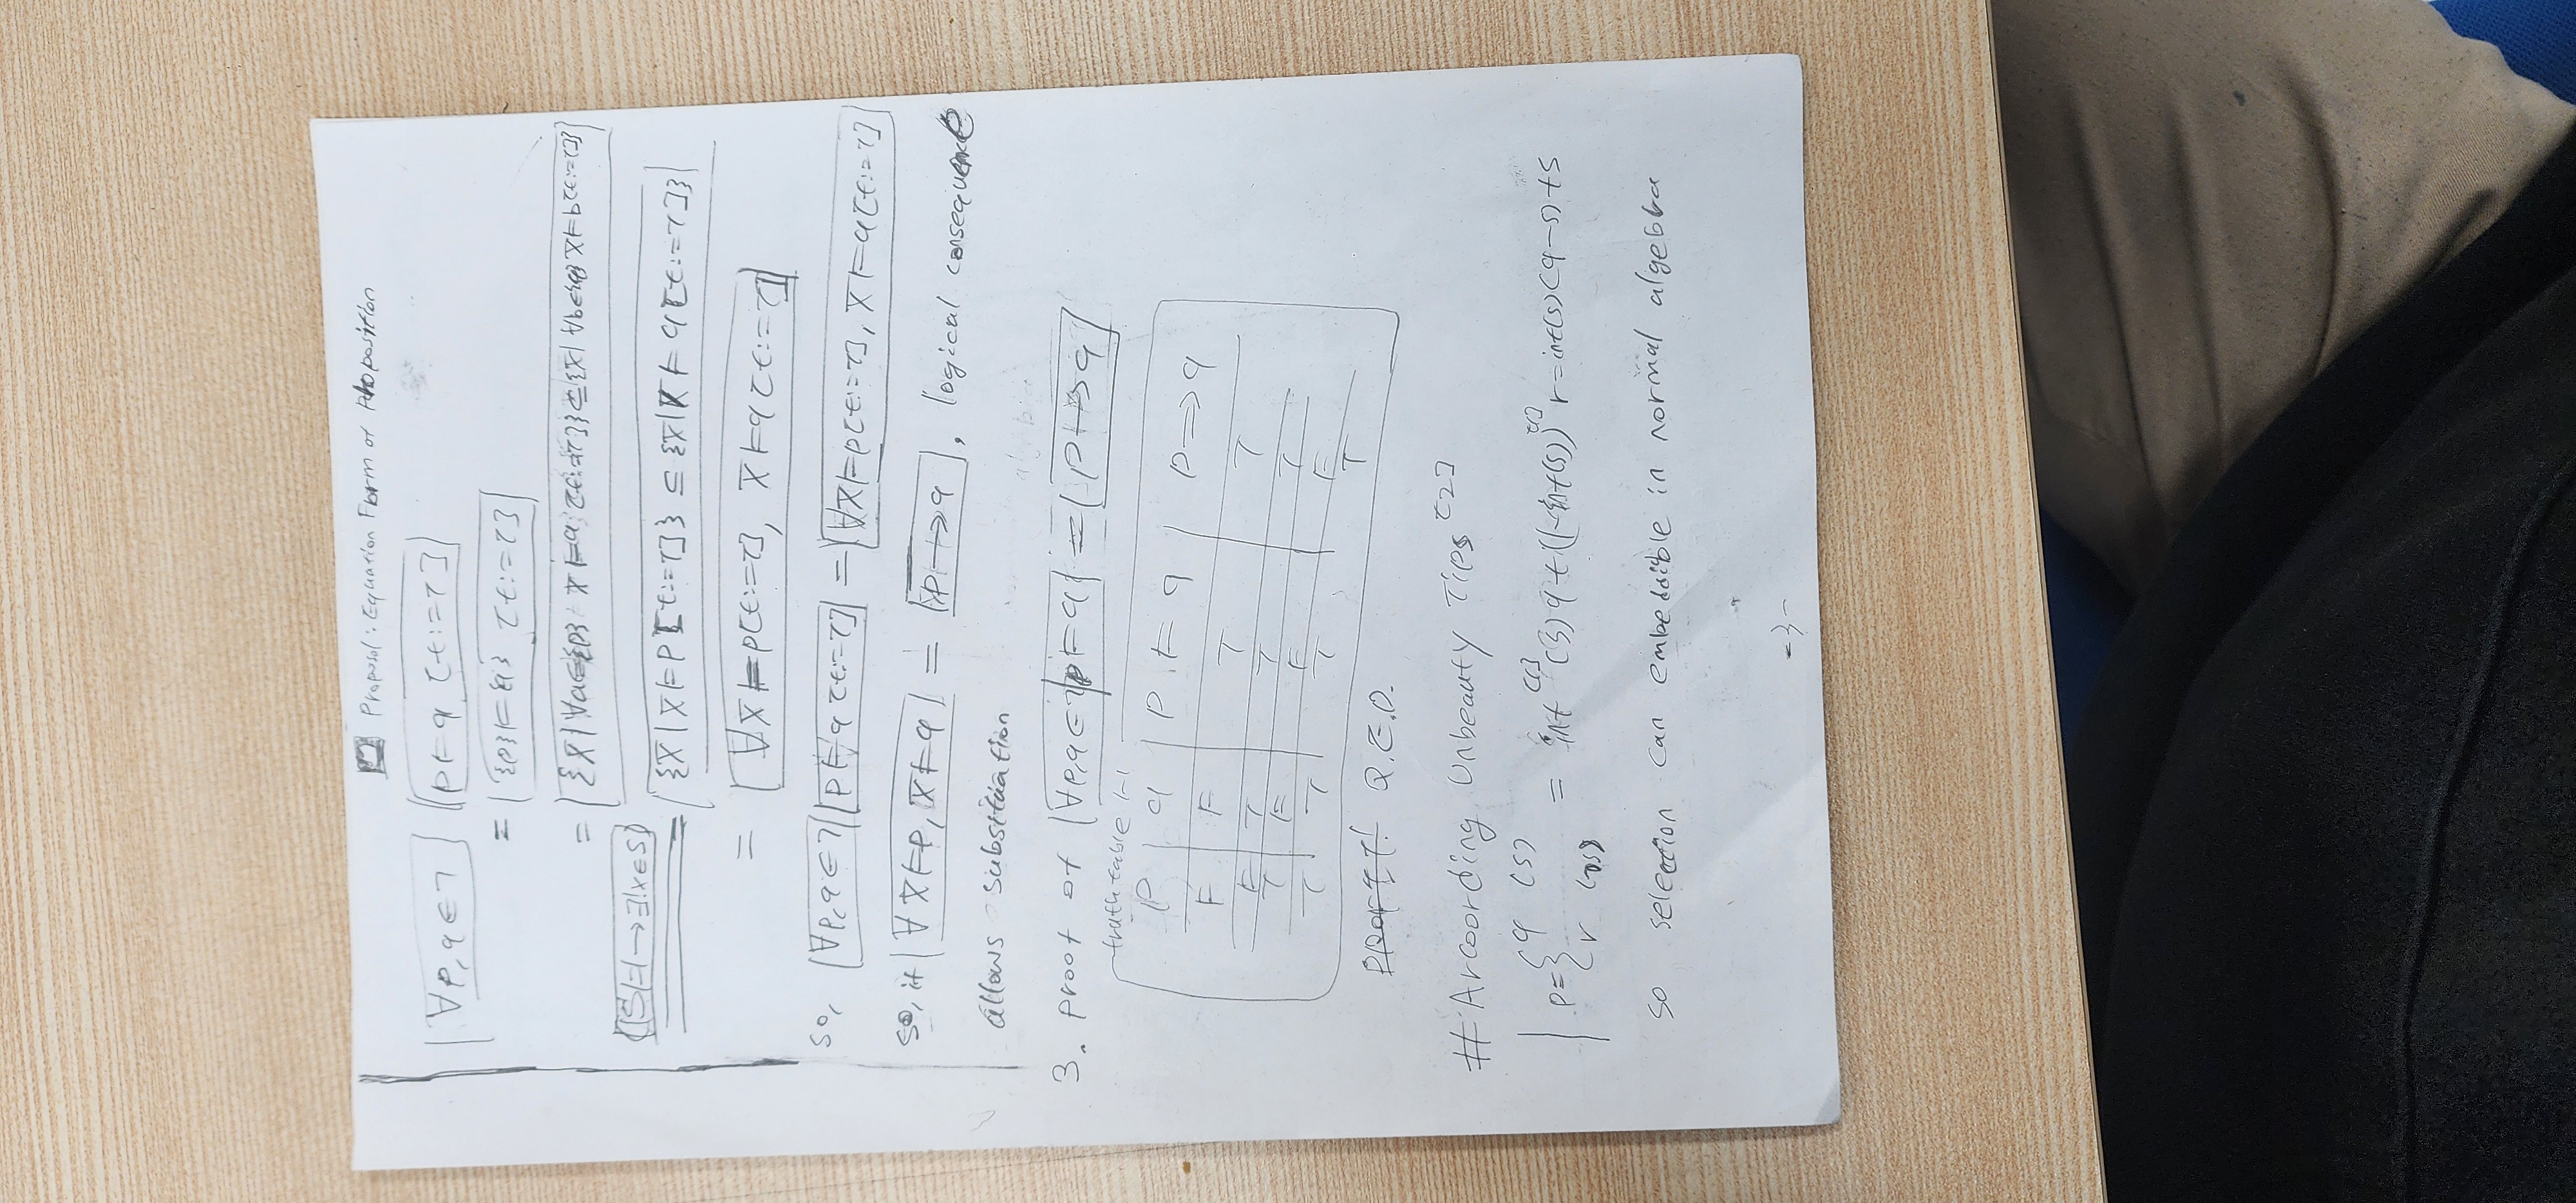 Proposal: Equation Form of Proposition
∀p,q∈ㄱ p⊨q [t:=τ]
= {p}⊨{q} [t:=τ]
= {X|∀a∈{p} X⊨a [t:=τ]}⊆{X|∀b∈{q} X⊨b[t:=τ]}
(|S|=1→∃!x∈S)
= {X|X⊨p[t:=τ]} ⊆ {X|X⊨q[t:=τ]}
= ∀X⊨p[t:=τ], X⊨q[t:=τ]
so, ∀p,q∈ㄱ p⊨q[t:=τ] = ∀X⊨p[t:=τ], X⊨q[t:=τ]
so, if ∀X⊨p, X⊨q = p→q, logical consequence
allows substituation
3. proof of ∀p,q∈ㄱ p⊨q = p→q
truth table 1-1
P q P⊨q p⟹q
F F T T
F T T T
T F F F
T T T T
Q.E.D.
# Arcoording Unbeauty Tips [2]
p={q (s) r (¬s) = int[1](s)q+(1-int(s))[1]r=int(s)(q-s)+s
so selection can embeddible in normal algebra
-3-